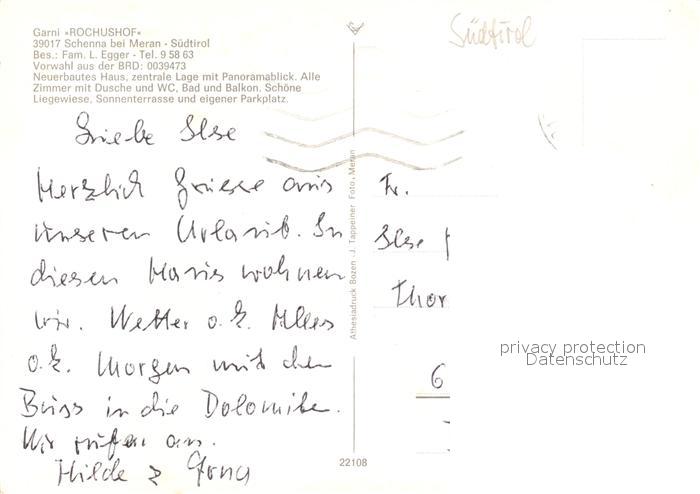 Garni »ROCHUSHOF«
39017 Schenna bei Meran - Südtirol
Bes.: Fam. L. Egger - Tel. 9 58 63
Vorwahl aus der BRD: 0039473
Neuerbautes Haus, zentrale Lage mit Panoramablick. Alle
Zimmer mit Dusche und WC, Bad und Balkon. Schöne
Liegewiese, Sonnenterrasse und eigener Parkplatz.
Südtirol
Liebe Ilse
Herzlich Grüsse aus
unseren Urlaub. In
diesen Haus wohnen
wir. Wetter o.k. Alles
o.k. Morgen mit den
Buss in die Dolomite.
Wir rufen an.
Hilde
Athesiadruck Bozen - J. Tappeiner Foto, Meran
22108
Fr.
Ilse
Thor
6
privacy protection
Datenschutz